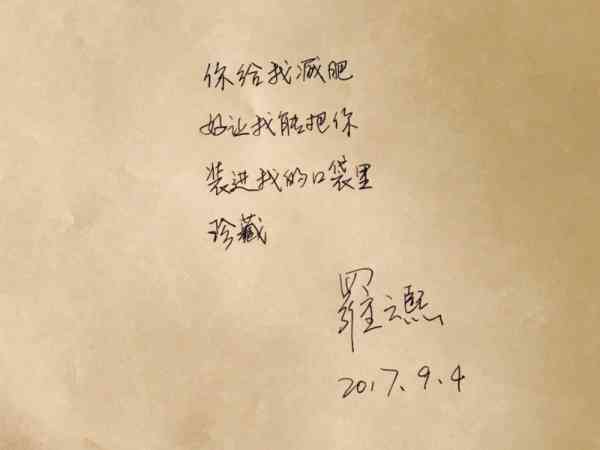 你给我减肥
好让我能把你
装进我的口袋里
珍藏
羅云熙
2017.9.4